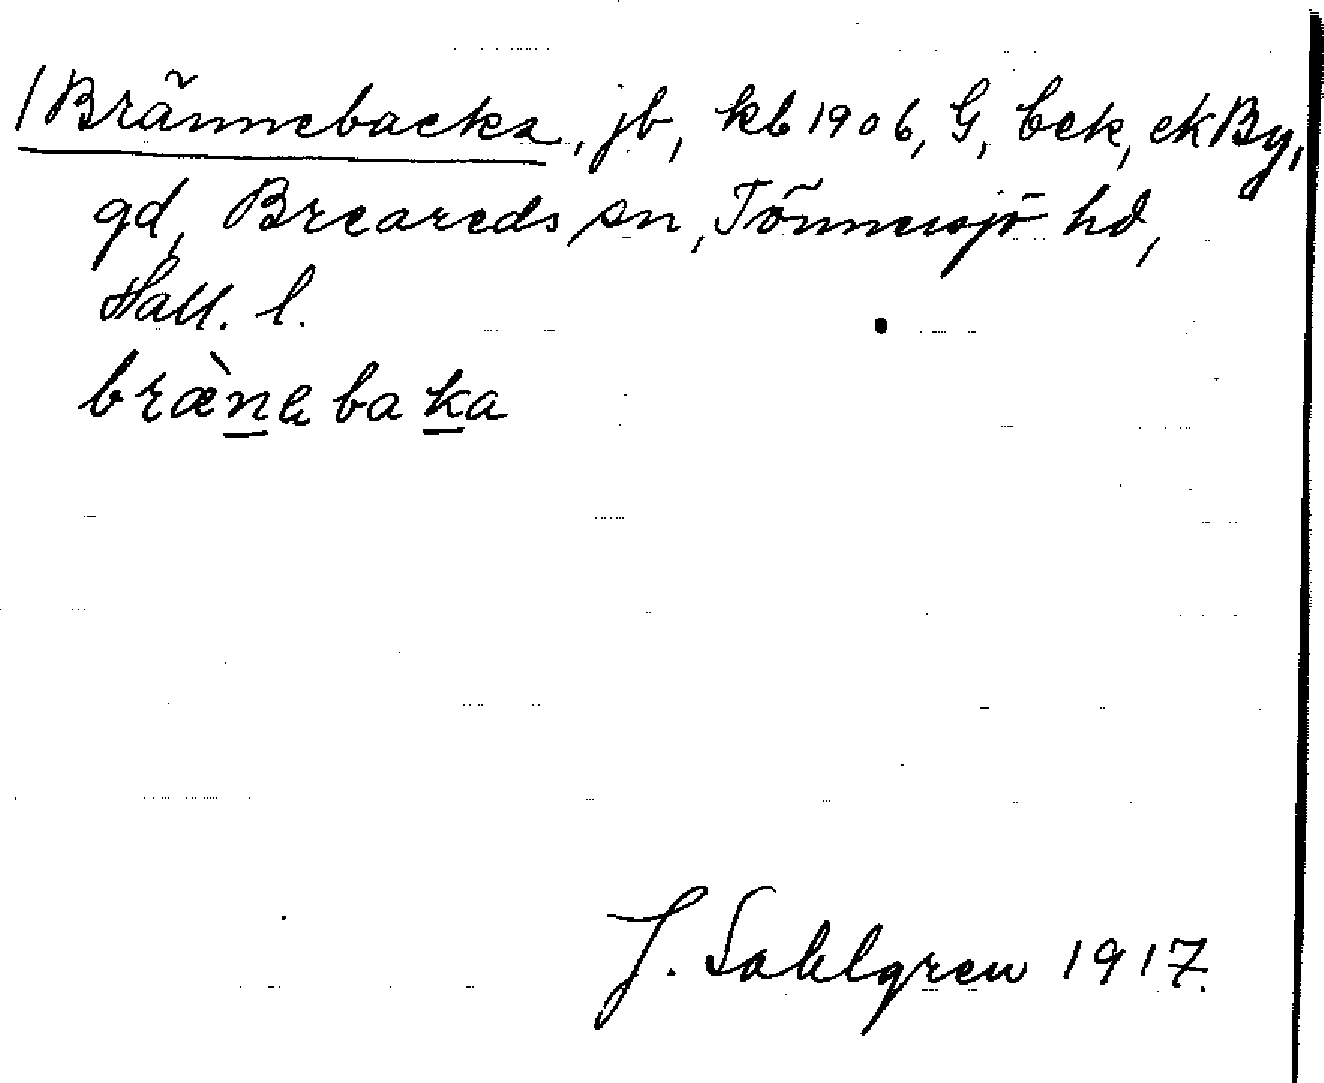 /Brännebacka, jb, kb 1906, G, bek, ek By,
gd, Breareds sn, Tönnersjö hd,
Hall. l.
bræ̀nebaka
J. Sahlgren 1917.